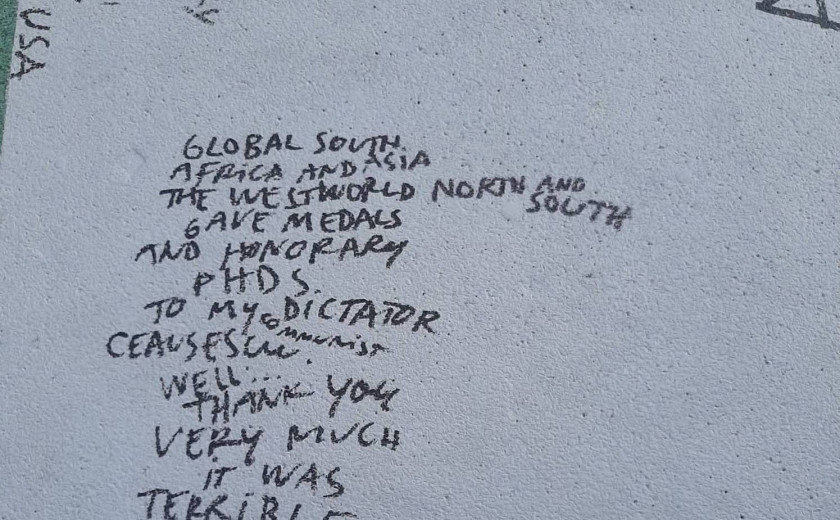 USA
GLOBAL SOUTH
AFRICA AND ASIA
THE WESTWORLD NORTH AND
SOUTH
GAVE MEDALS
AND HONORARY
PHDS.
TO MY DICTATOR
COMMUNIST
CEAUSESCU.
WELL...
THANK YOU
VERY MUCH
IT WAS
TERRIBLE